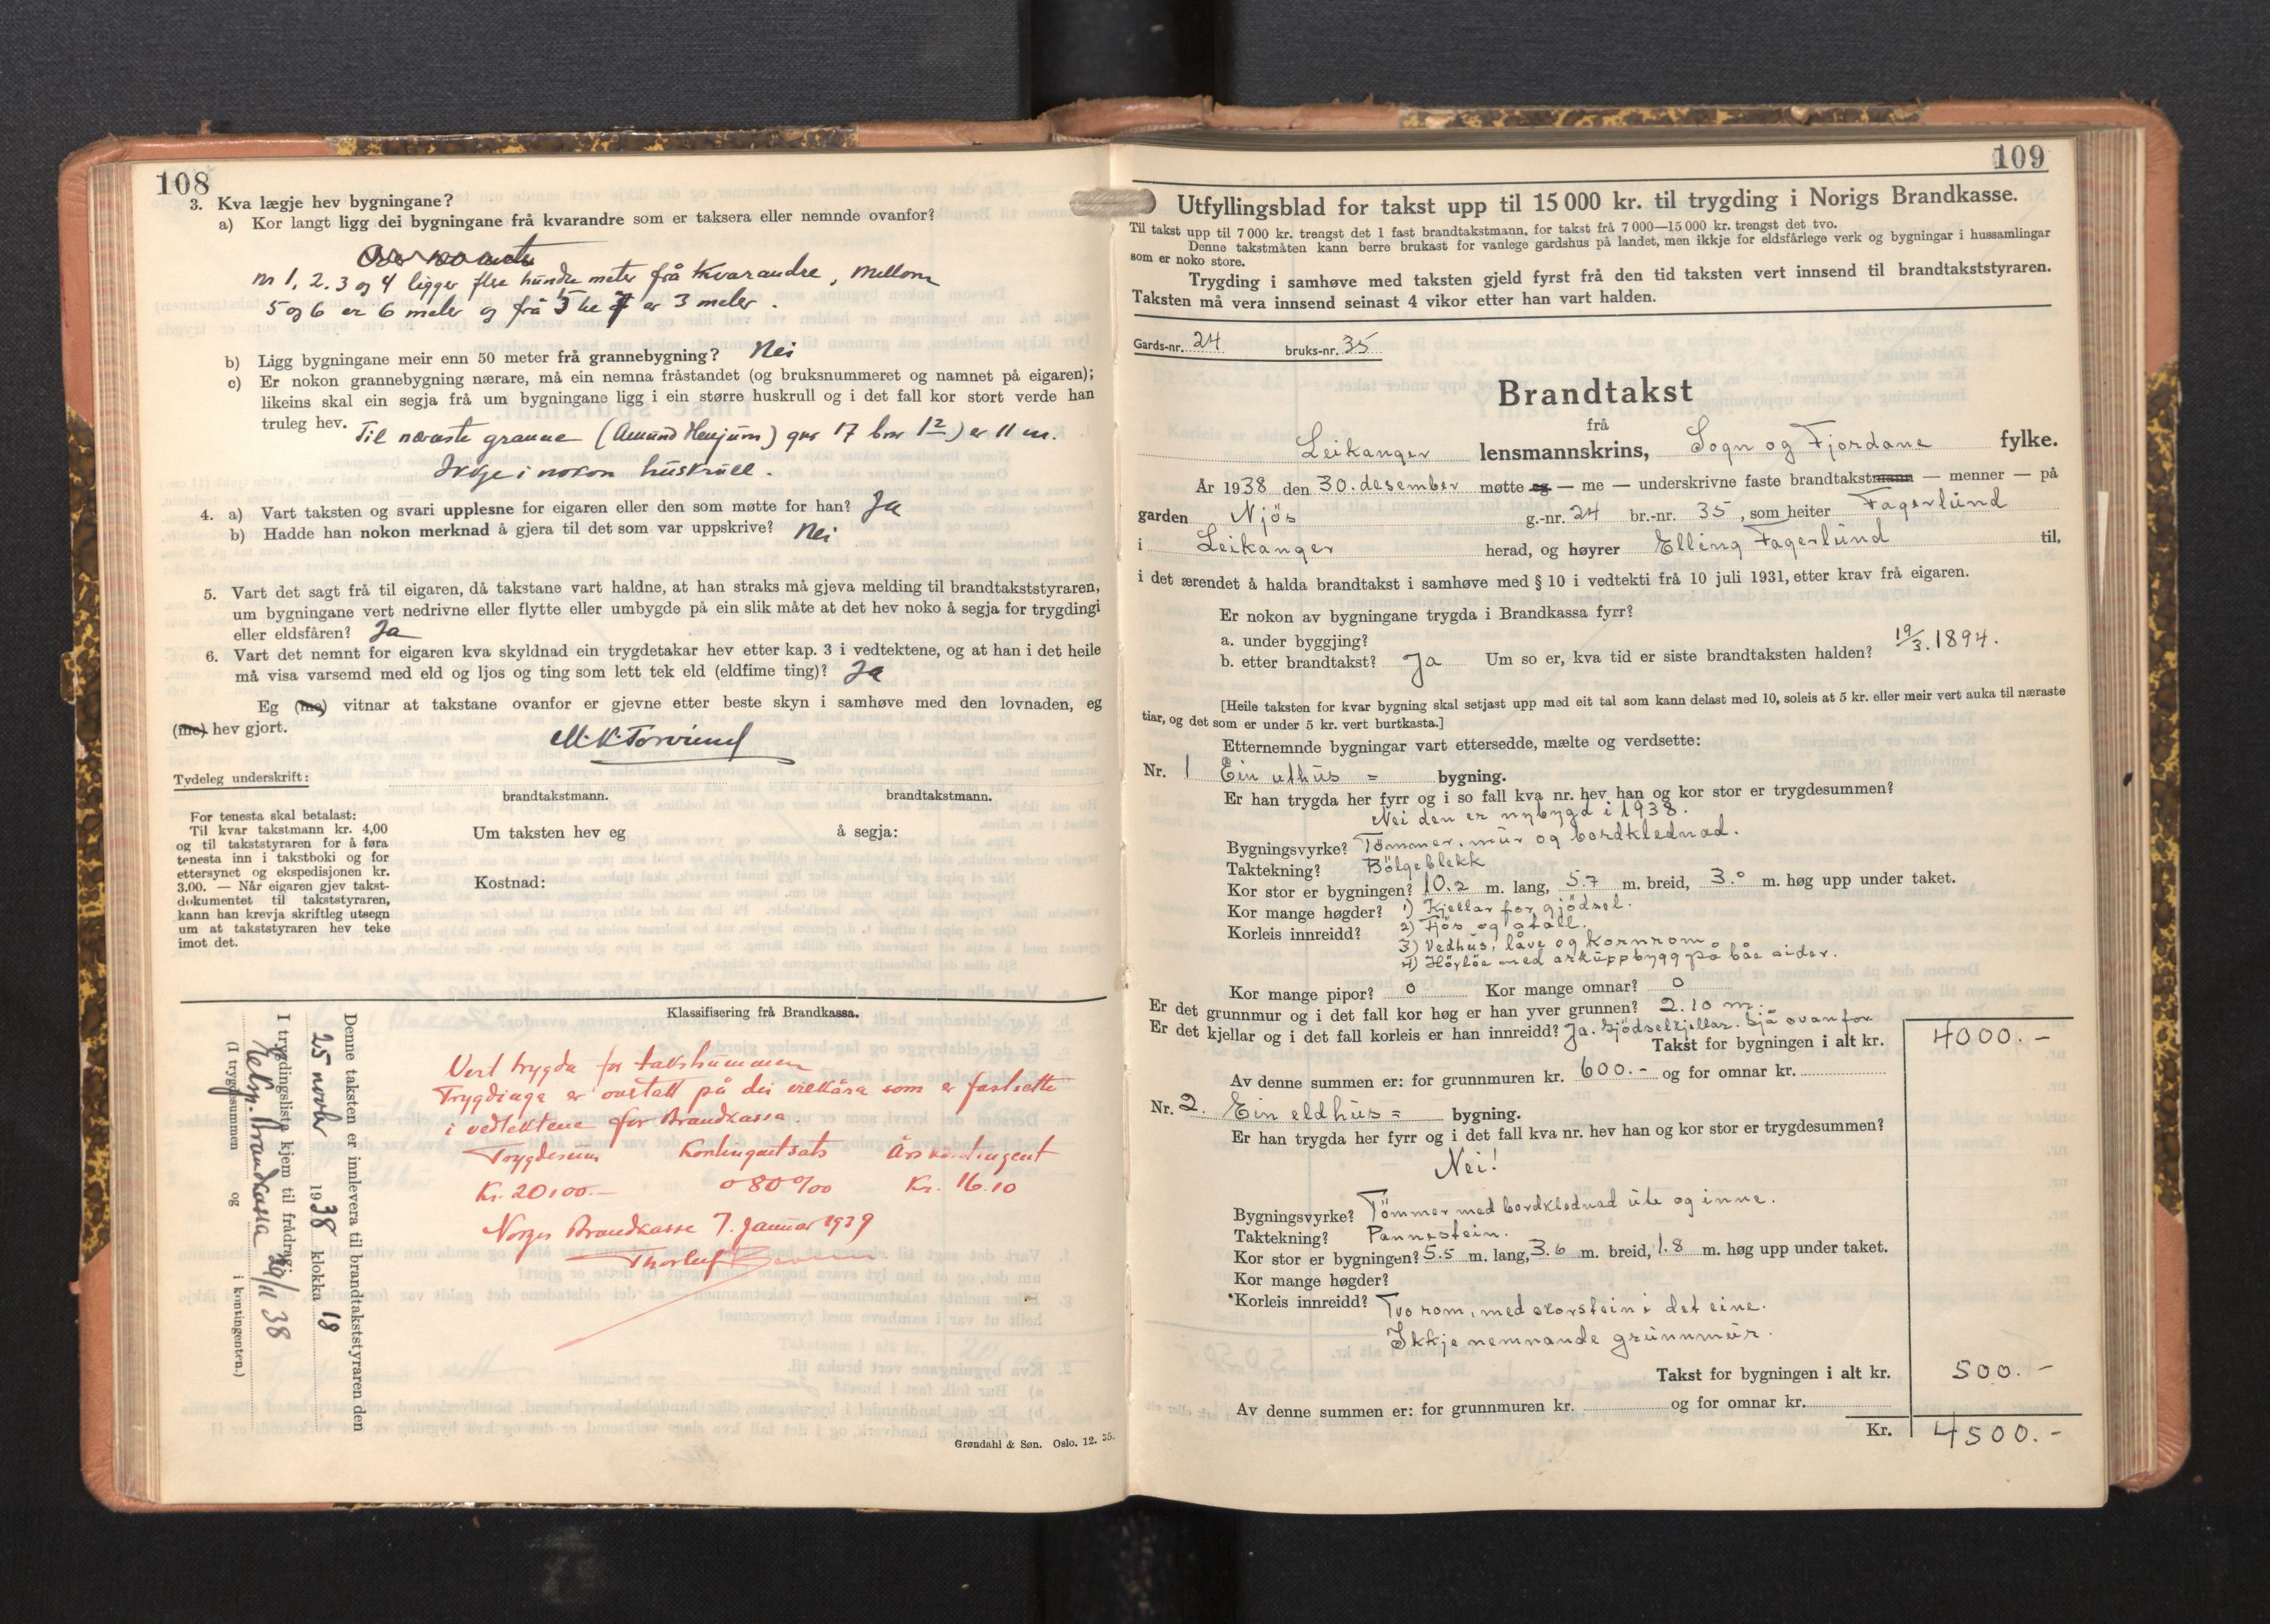 108
3. Kva lægje hev bygningane?
a) Kor langt ligg dei bygningane frå kvarandre som er taksera eller nemnde ovanfor?
nr 1, 2. 3 og 4 ligger flre hundre meter frå kvarandre, mellom
5 og 6 er 6 meter og frå 5 te 7 er 3 meter.
b) Ligg bygningane meir enn 50 meter frå grannebygning? Nei
c) Er nokon grannebygning nærare, må ein nemna fråstandet (og bruksnummeret og namnet på eigaren);
likeins skal ein segja frå um bygningane ligg i ein større huskrull og i det fall kor stort verde han
truleg hev. Til næraste granne (Amund Henjum) gnr 17 bnr 12) er 11 m.
Ikkje i nokon huskrull.
4. a) Vart taksten og svari upplesne for eigaren eller den som møtte for han? Ja
b) Hadde han nokon merknad å gjera til det som var uppskrive? Nei
5. Vart det sagt frå til eigaren, då takstane vart haldne, at han straks må gjeva melding til brandtakststyraren,
um bygningane vert nedrivne eller flytte eller umbygde på ein slik måte at det hev noko å segja for trygdingi
eller eldsfåren? Ja
6. Vart det nemnt for eigaren kva skyldnad ein trygdetakar hev etter kap. 3 i vedtektene, og at han i det heile
må visa varsemd med eld og ljos og ting som lett tek eld (eldfime ting)? Ja
Eg (me) vitnar at takstane ovanfor er gjevne etter beste skyn i samhøve med den lovnaden, eg
(me) hev gjort.
M. K. Torvund
Tydeleg underskrift:
brandtakstmann. brandtakstmann.
For tenesta skal betalast:
Til kvar takstmann kr. 4,00
og til takststyraren for å føra
tenesta inn i takstboki og for
ettersynet og ekspedisjonen kr.
3.00. — Når eigaren gjev takst-
dokumentet til takststyraren,
kann han krevja skriftleg utsegn
um at takststyraren hev teke
imot det.
Um taksten hev eg å segja:
Kostnad:
Klassifisering frå Brandkassa.
Vert trygda for takstsummen
Trygdinga er avslatt på dei vilkåra som er fastsette
i vedtektene for Brandkassa.
Trygdesum Kontingentsats Årskontingent
Kr. 20100.— 0 80 ‰ Kr. 16.10
Norges Brandkasse 7. januar 1939
Thorleif
Denne taksten er innlevera til brandtakststyraren den
25 novbr 1938 klokka 18
I trygdingslista kjem til frådrag:
Brandkassa 29/11 38
(I trygdesummen og i kontingenten.)
Grøndahl & Søn. Oslo. 12. 35.
109
Utfyllingsblad for takst upp til 15 000 kr. til trygding i Norigs Brandkasse.
Til takst upp til 7 000 kr. trengst det 1 fast brandtakstmann, for takst frå 7 000—15 000 kr. trengst det tvo.
Denne takstmåten kann berre brukast for vanlege gardshus på landet, men ikkje for eldsfårlege verk og bygningar i hussamlingar
som er noko store.
Trygding i samhøve med taksten gjeld fyrst frå den tid taksten vert innsend til brandtakststyraren.
Taksten må vera innsend seinast 4 vikor etter han vart halden.
Gards-nr. 24 bruks-nr. 35
Brandtakst
frå
Leikanger lensmannskrins, Sogn og Fjordane fylke.
År 1938 den 30. desember møtte eg — me — underskrivne faste brandtakstmann — menner — på
garden Njøs g.-nr. 24 br.-nr. 35, som heiter Fagerlund
i Leikanger herad, og høyrer Elling Fagerlund til,
i det ærendet å halda brandtakst i samhøve med § 10 i vedtekti frå 10 juli 1931, etter krav frå eigaren.
Er nokon av bygningane trygda i Brandkassa fyrr?
a. under byggjing?
b. etter brandtakst? Ja Um so er, kva tid er siste brandtaksten halden? 19/3. 1894.
[Heile taksten for kvar bygning skal setjast upp med eit tal som kann delast med 10, soleis at 5 kr. eller meir vert auka til næraste
tiar, og det som er under 5 kr. vert burtkasta.]
Etternemnde bygningar vart ettersedde, mælte og verdsette:
Nr. 1 Ein uthus = bygning.
Er han trygda her fyrr og i so fall kva nr. hev han og kor stor er trygdesummen?
Nei den er nybygd i 1938.
Bygningsvyrke? Tömmer, mur og bordklednad.
Taktekning? Bölgeblekk
Kor stor er bygningen? 10.2 m. lang, 5.7 m. breid, 3.0 m. høg upp under taket.
Kor mange høgder? 1) Kjellar for gjödsel.
Korleis innreidd? 2) Fjös og stall.
3) Vedhus, låve og kornrom
4) Höyløe med arkuppbygg på båe sider.
Kor mange pipor? 0 Kor mange omnar? 0
Er det grunnmur og i det fall kor høg er han yver grunnen? 2.10 m.
Er det kjellar og i det fall korleis er han innreidd? Ja. Gjödselkjellar. Sjå ovanfor
Takst for bygningen i alt kr. 4000.-
Av denne summen er: for grunnmuren kr. 600.- og for omnar kr.
Nr. 2. Ein eldhus = bygning.
Er han trygda her fyrr og i det fall kva nr. hev han og kor stor er trygdesummen?
Nei!
Bygningsvyrke? Tömmer med bordklednad ute og inne.
Taktekning? Pannestein.
Kor stor er bygningen? 5.5 m. lang, 3.6 m. breid, 1.8 m. høg upp under taket.
Kor mange høgder?
Korleis innreidd? Tvo rom, med skorstein i det eine.
Ikkje nemnande grunnmur.
Takst for bygningen i alt kr. 500.-
Av denne summen er: for grunnmuren kr. og for omnar kr.
Kr. 4500.-